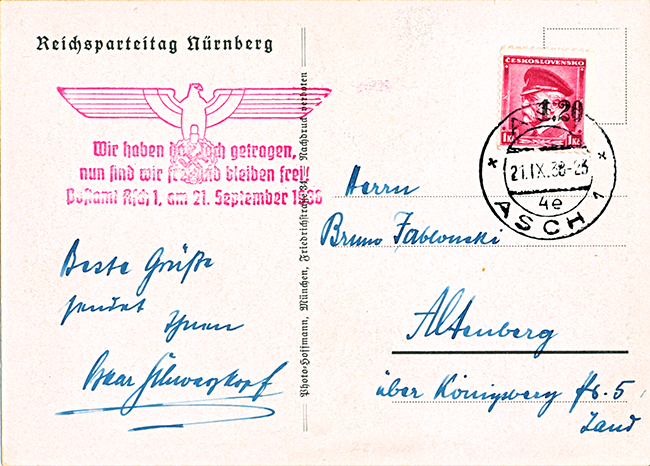 Reichsparteitag Nürnberg
Wir haben das Joch getragen,
nun sind wir frei und bleiben frei!
Postamt Asch 1, am 21. September 1938
Beste Grüße
sendet
Ihnen
Oskar
Photo-Hoffmann, München, Friedrichstraße 34. Nachdruck verboten
ČESKOSLOVENSKO
1.20
1 Kč
21.IX.38-23
4e
ASCH 1
Herrn
Bruno Jablonski
Altenberg
über Königsberg
Land